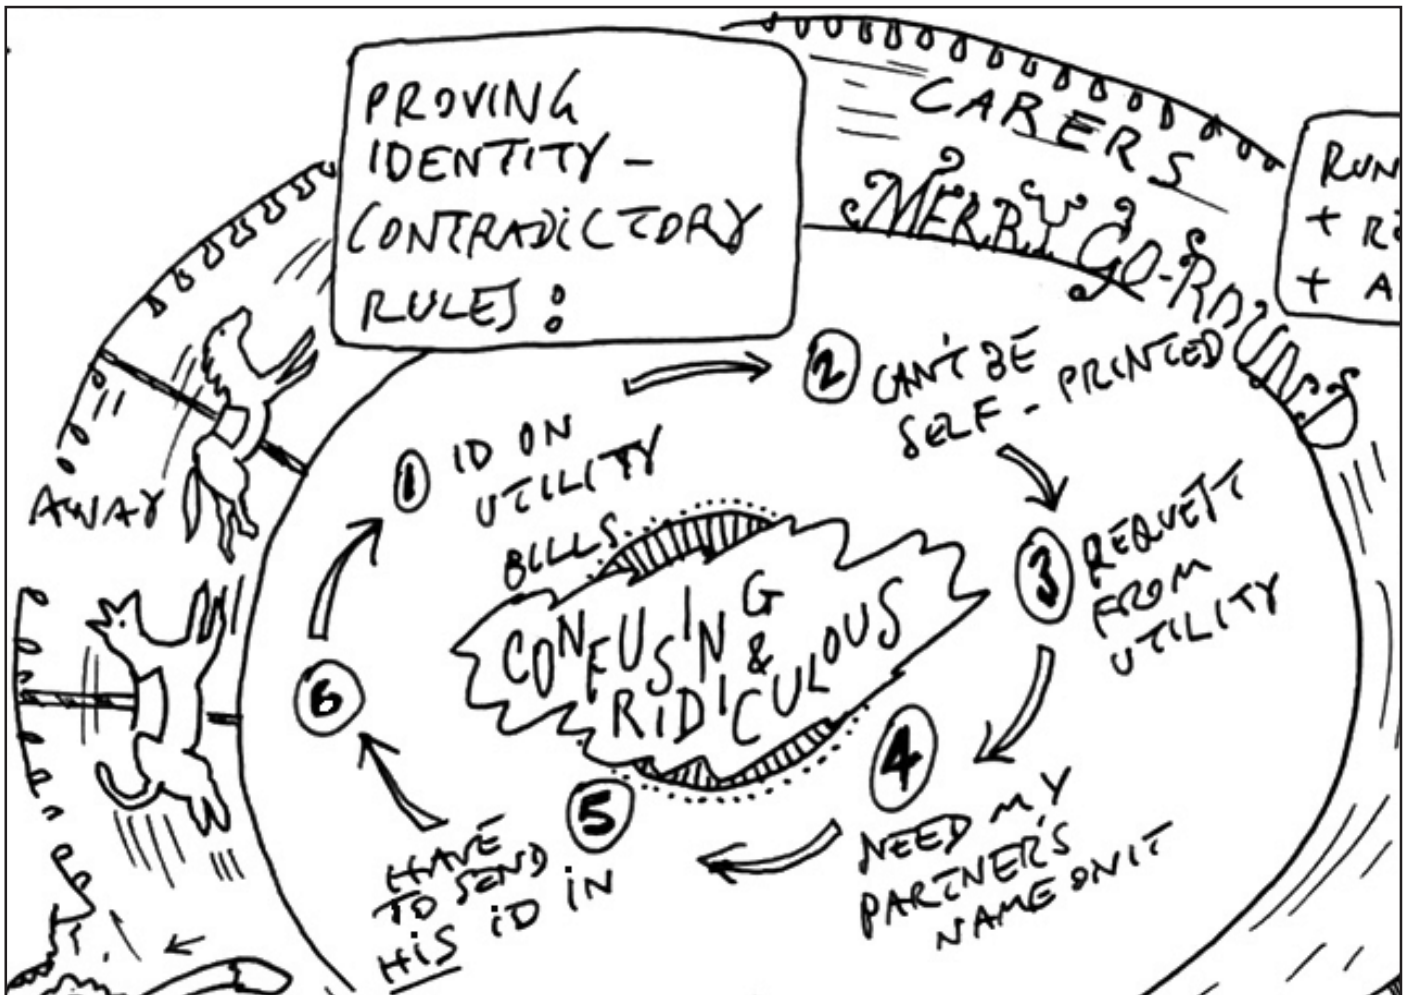 PROVING
IDENTITY -
CONTRADICTORY
RULES:
CARERS
MERRY GO-ROUNDS
RUN
+ R
+ A
AWAY
1 ID ON
UTILITY
BILLS
2 CAN'T BE
SELF-PRINTED
3 REQUEST
FROM
UTILITY
4
NEED MY
PARTNER'S
NAME ON IT
5
HAVE
TO SEND
HIS ID IN
6
CONFUSING
&
RIDICULOUS